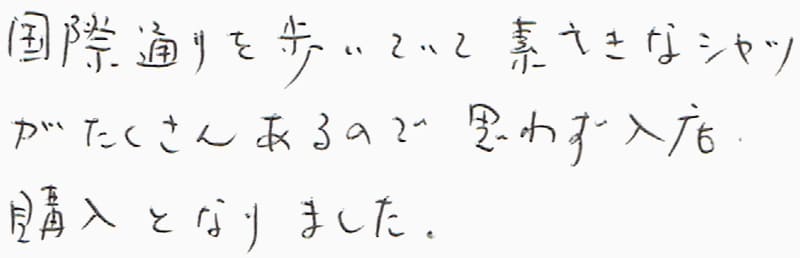 国際通りを歩いていて素てきなシャツ
がたくさんあるので思わず入店.
購入となりました。